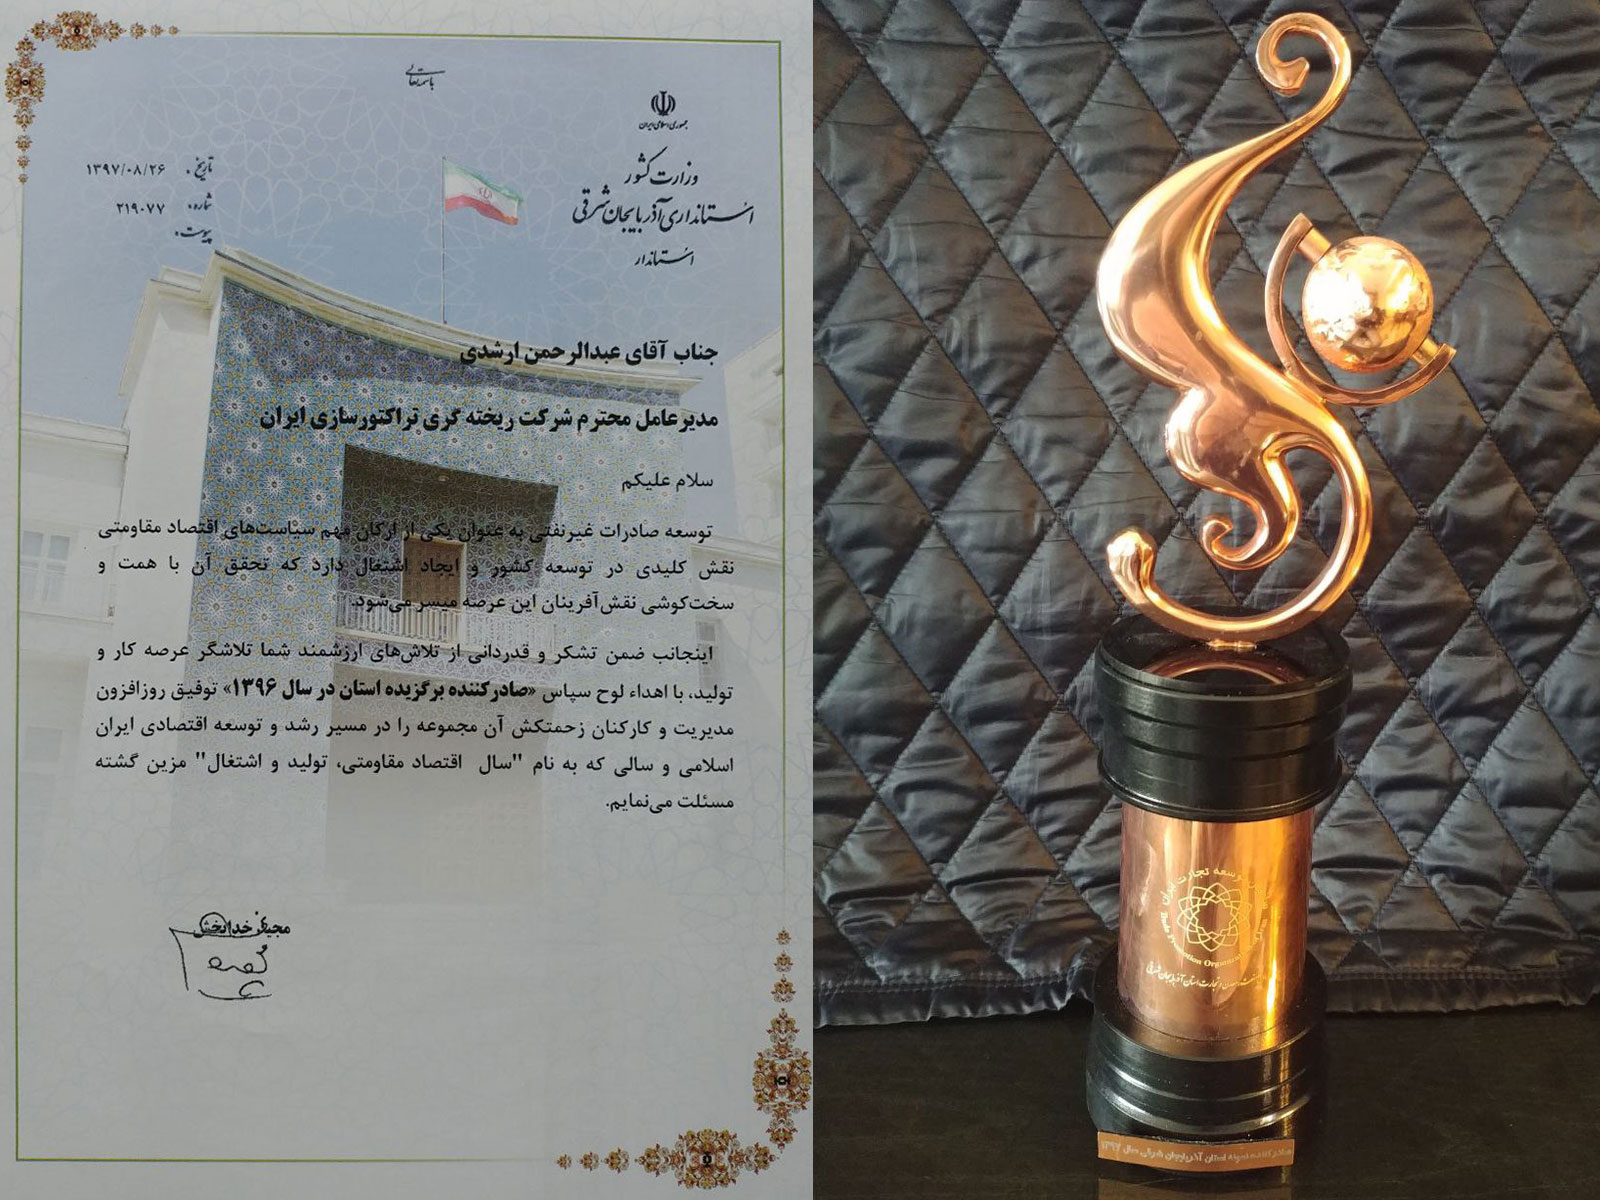 باسمه تعالی
جمهوری اسلامی ایران
وزارت کشور
استانداری آذربایجان شرقی
استاندار
تاریخ . ۱۳۹۷/۰۸/۲۶
شماره. ۲۱۹۰۷۷
پیوست.
جناب آقای عبدالرحمن ارشدی
مدیرعامل محترم شرکت ریخته گری تراکتورسازی ایران
سلام علیکم
توسعه صادرات غیرنفتی به عنوان یکی از ارکان مهم سیاست‌های اقتصاد مقاومتی
نقش کلیدی در توسعه کشور و ایجاد اشتغال دارد که تحقق آن با همت و
سخت‌کوشی نقش‌آفرینان این عرصه میسر می‌شود.
اینجانب ضمن تشکر و قدردانی از تلاش‌های ارزشمند شما تلاشگر عرصه کار و
تولید، با اهداء لوح سپاس «صادرکننده برگزیده استان در سال ۱۳۹۶» توفیق روزافزون
مدیریت و کارکنان زحمتکش آن مجموعه را در مسیر رشد و توسعه اقتصادی ایران
اسلامی و سالی که به نام "سال اقتصاد مقاومتی، تولید و اشتغال" مزین گشته
مسئلت می‌نمایم.
خدابخش
توسعه تجارت ایران
Trade Promotion Organization
تجارت استان آذربایجان شرقی
صادرکننده نمونه استان آذربایجان شرقی سال ۱۳۹۷